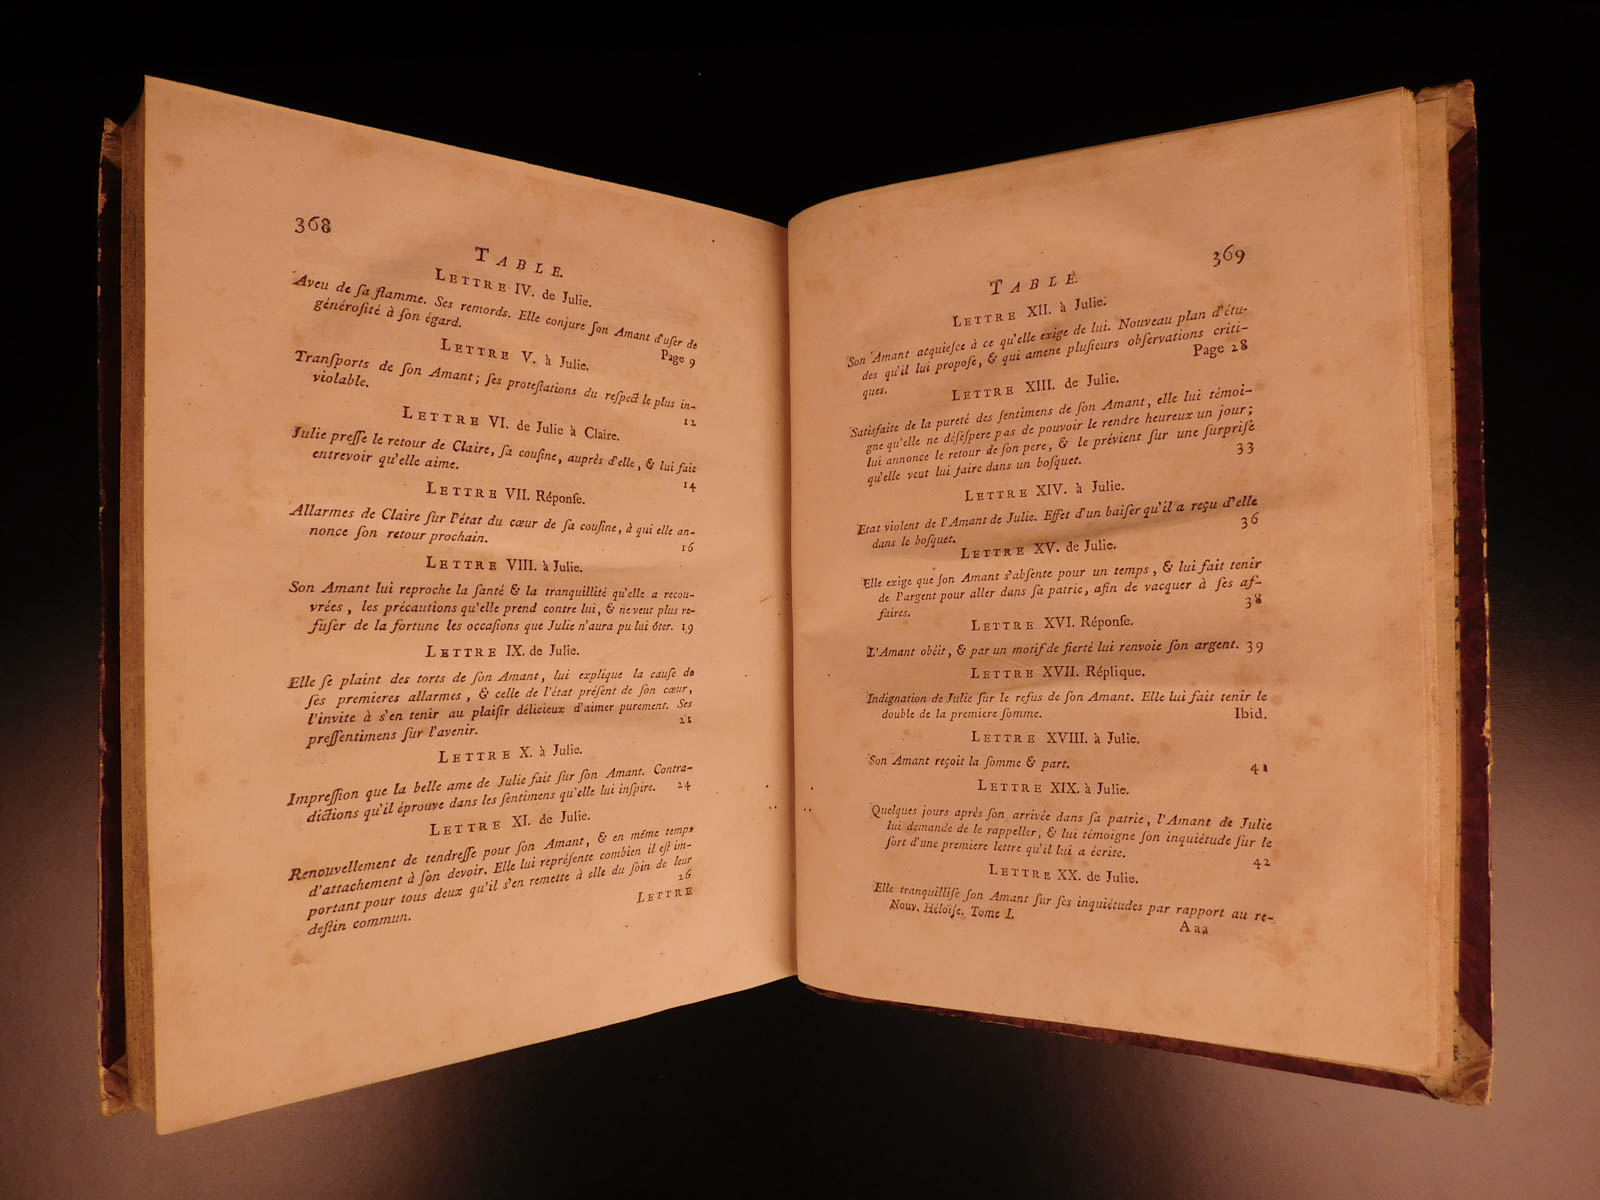 368
TABLE.
LETTRE IV. de Julie.
Aveu de ſa flamme. Ses remords. Elle conjure ſon Amant d'uſer de
généroſité à ſon égard. Page 9
LETTRE V. à Julie.
Tranſports de ſon Amant; ſes proteſtations du reſpect le plus in-
violable. 12
LETTRE VI. de Julie à Claire.
Julie preſſe le retour de Claire, ſa couſine, auprès d'elle, & lui fait
entrevoir qu'elle aime. 14
LETTRE VII. Réponſe.
Allarmes de Claire ſur l'état du cœur de ſa couſine, à qui elle an-
nonce ſon retour prochain. 16
LETTRE VIII. à Julie.
Son Amant lui reproche la ſanté & la tranquillité qu'elle a recou-
vrées, les précautions qu'elle prend contre lui, & ne veut plus re-
fuſer de la fortune les occaſions que Julie n'aura pu lui ôter. 19
LETTRE IX. de Julie.
Elle ſe plaint des torts de ſon Amant, lui explique la cauſe de
ſes premieres allarmes, & celle de l'état préſent de ſon cœur,
l'invite à s'en tenir au plaiſir délicieux d'aimer purement. Ses
preſſentimens ſur l'avenir. 21
LETTRE X. à Julie.
Impreſſion que la belle ame de Julie fait ſur ſon Amant. Contra-
dictions qu'il éprouve dans les ſentimens qu'elle lui inſpire. 24
LETTRE XI. de Julie.
Renouvellement de tendreſſe pour ſon Amant, & en même temps
d'attachement à ſon devoir. Elle lui repréſente combien il eſt im-
portant pour tous deux qu'il s'en remette à elle du ſoin de leur
deſtin commun. 26
LETTRE
369
TABLE.
LETTRE XII. à Julie.
Son Amant acquieſce à ce qu'elle exige de lui. Nouveau plan d'étu-
des qu'il lui propoſe, & qui amene pluſieurs obſervations criti-
ques. Page 28
LETTRE XIII. de Julie.
Satisfaite de la pureté des ſentimens de ſon Amant, elle lui témoi-
gne qu'elle ne déſeſpere pas de pouvoir le rendre heureux un jour;
lui annonce le retour de ſon pere, & le prévient ſur une ſurpriſe
qu'elle veut lui faire dans un boſquet. 33
LETTRE XIV. à Julie.
Etat violent de l'Amant de Julie. Effet d'un baiſer qu'il a reçu d'elle
dans le boſquet. 36
LETTRE XV. de Julie.
Elle exige que ſon Amant s'abſente pour un temps, & lui fait tenir
de l'argent pour aller dans ſa patrie, afin de vacquer à ſes af-
faires. 38
LETTRE XVI. Réponſe.
L'Amant obéit, & par un motif de fierté lui renvoie ſon argent. 39
LETTRE XVII. Réplique.
Indignation de Julie ſur le refus de ſon Amant. Elle lui fait tenir le
double de la premiere ſomme. Ibid.
LETTRE XVIII. à Julie.
Son Amant reçoit la ſomme & part. 41
LETTRE XIX. à Julie.
Quelques jours après ſon arrivée dans ſa patrie, l'Amant de Julie
lui demande de le rappeller, & lui témoigne ſon inquiétude ſur le
ſort d'une premiere lettre qu'il lui a écrite. 42
LETTRE XX. de Julie.
Elle tranquilliſe ſon Amant ſur ſes inquiétudes par rapport au re-
Nouv. Héloïſe. Tome I. Aaa